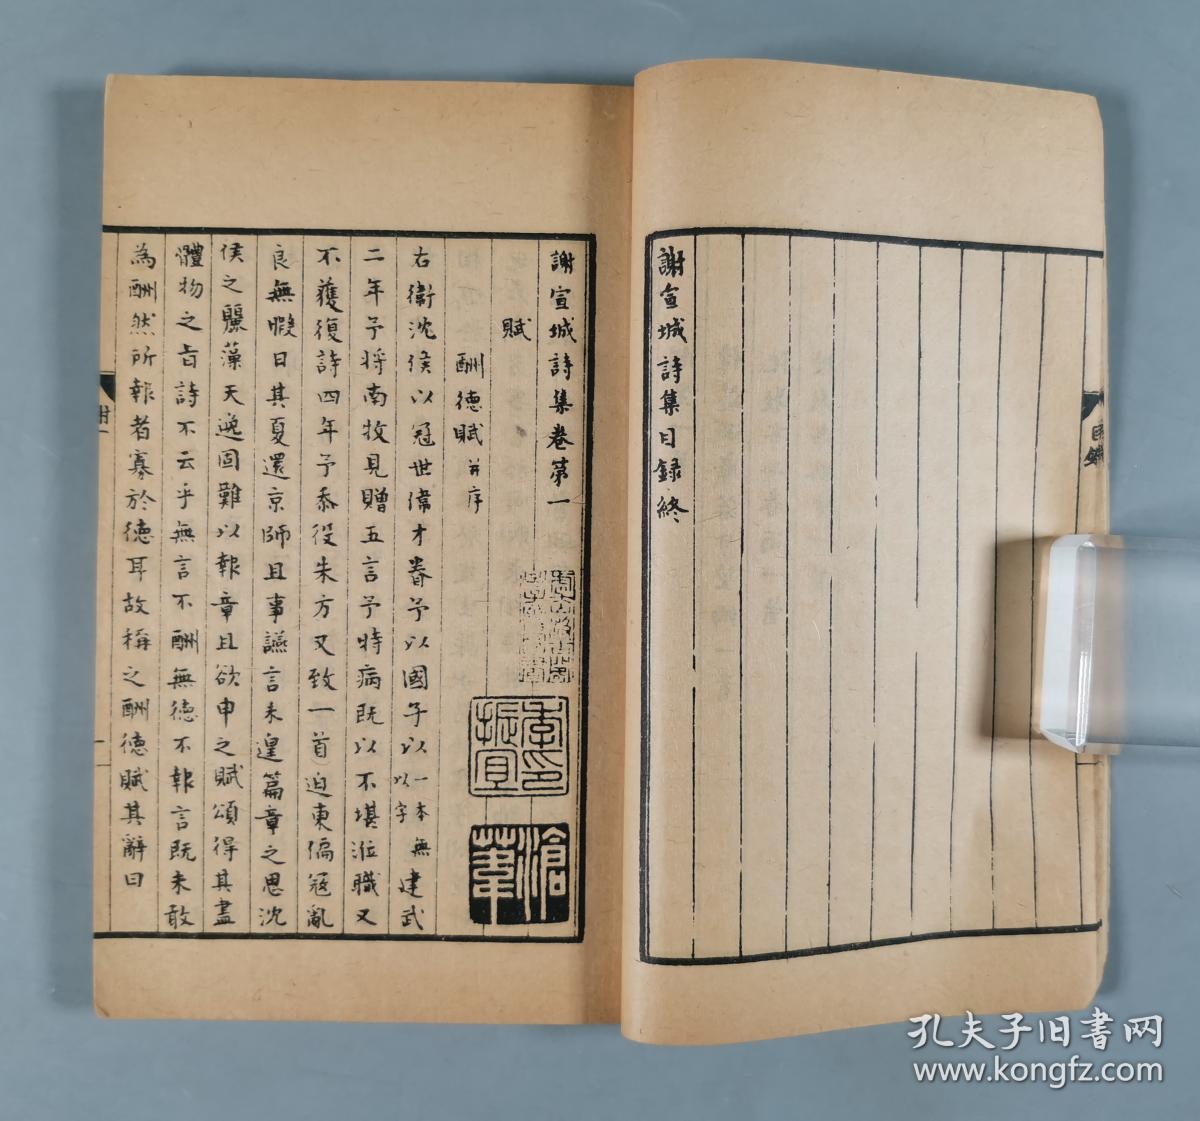 謝宣城詩集目録終
目録
謝宣城詩集卷第一
賦
酬德賦并序
右衛沈侯以冠世偉才眷予以國子以一本無以字建武
二年予將南牧見贈五言予時病既以不堪涖職又
不獲復詩四年予忝役朱方又致一首迫東偏寇亂
良無暇日其夏還京師且事讌言未遑篇章之思沈
侯之麗藻天逸固難以報章且欲申之賦頌得其盡
體物之旨詩不云乎無言不酬無德不報言既未敢
為酬然所報者寡於德耳故稱之酬德賦其辭曰
謝一
季印振宜
滄葦
孔夫子旧书网
www.kongfz.com